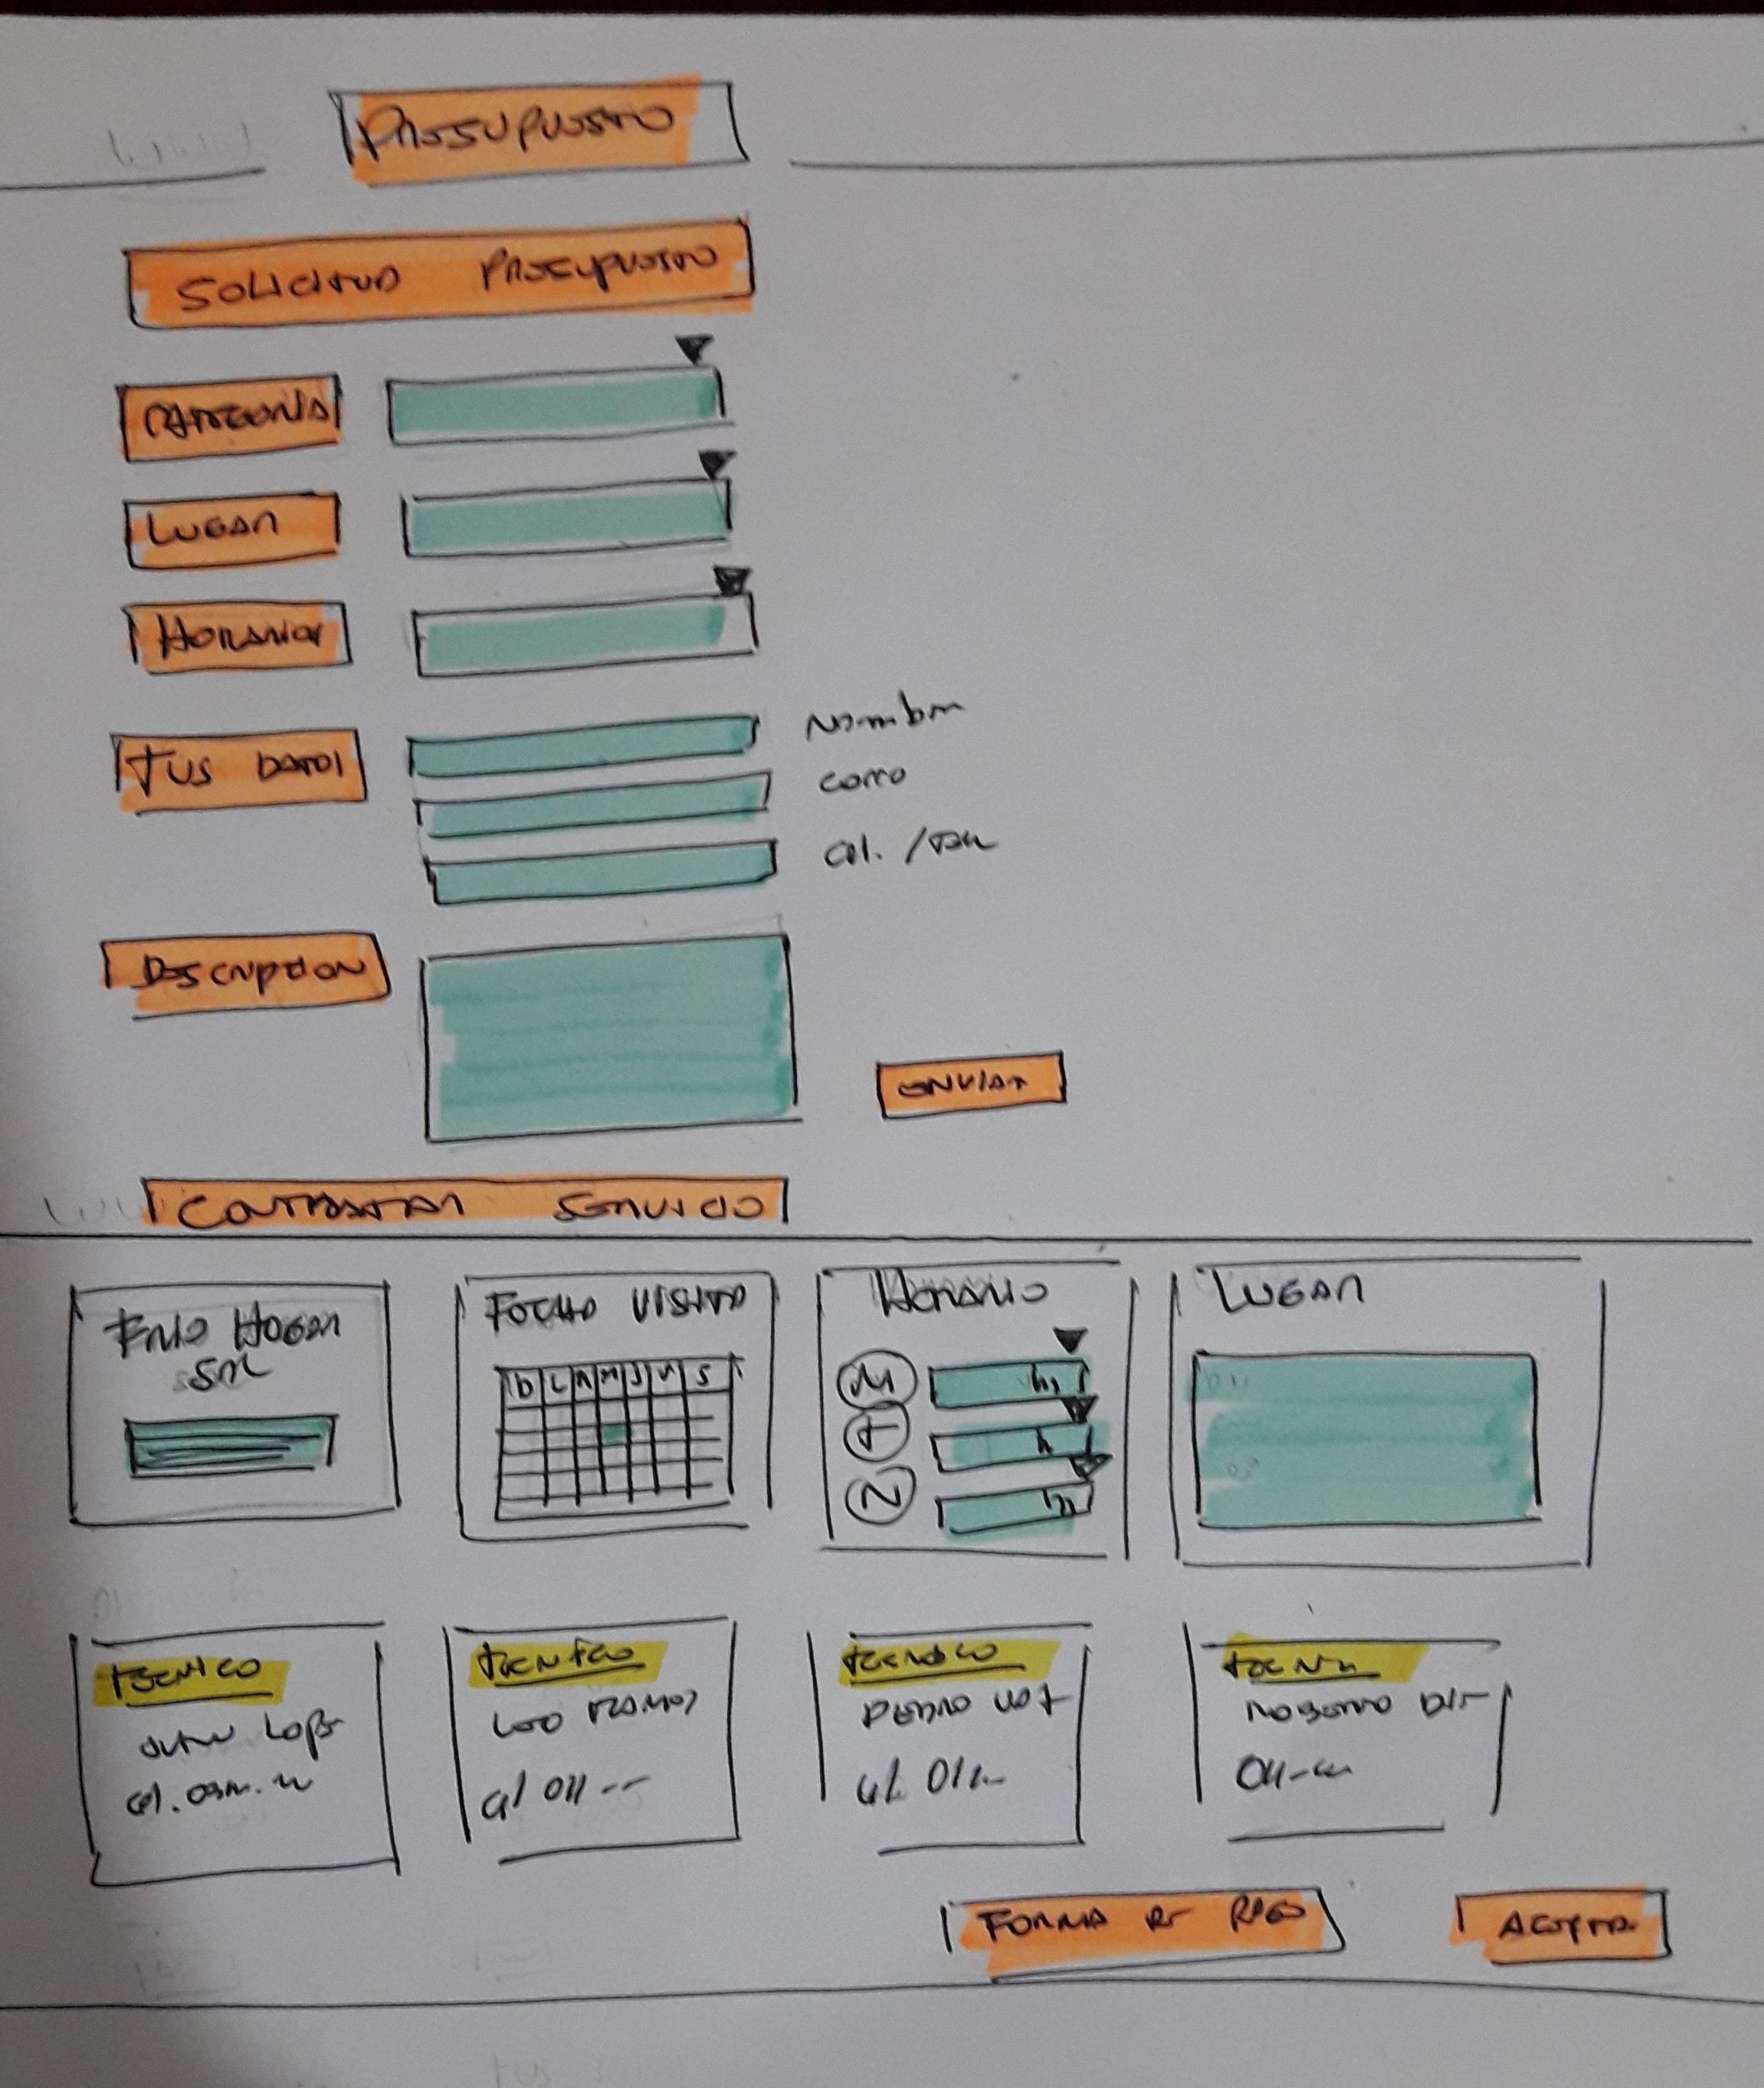 PRESUPUESTO
SOLICITUD PRESUPUESTO
CATEGORIA
LUGAR
HORARIO
TUS DATOS
Nombre
correo
cel. /
DESCRIPCION
ENVIAR
CONTRATAR SERVICIO
HOGAR
FECHA VISITA
D L M M J V S
HORARIO
M h
T h
N h
LUGAR
TECNICO
cel.
TECNICO
LEO RAMOS
cel 011 --
TECNICO
PEDRO
cel. 011
TECNICO
ROBERTO
011
FORMA DE PAGO
ACEPTAR